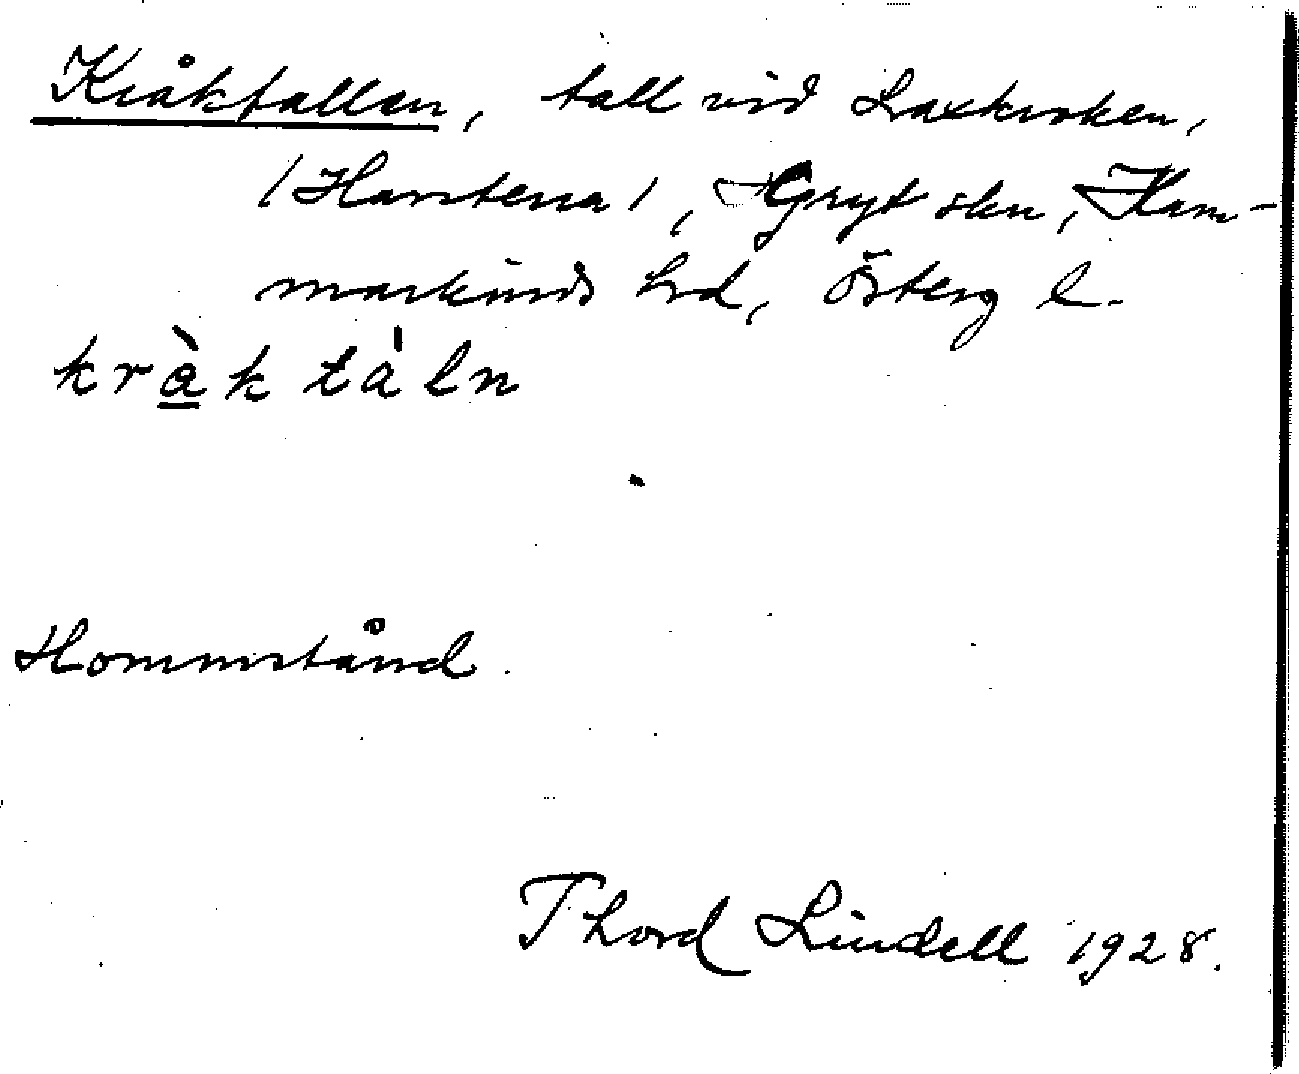 Kråktallen, tall vid Laxkroken,
/Harstena/, Gryt skn, Ham-
markinds hd, Österg l.
kràk tàln
Hommstånd.
Thord Lindell 1928.